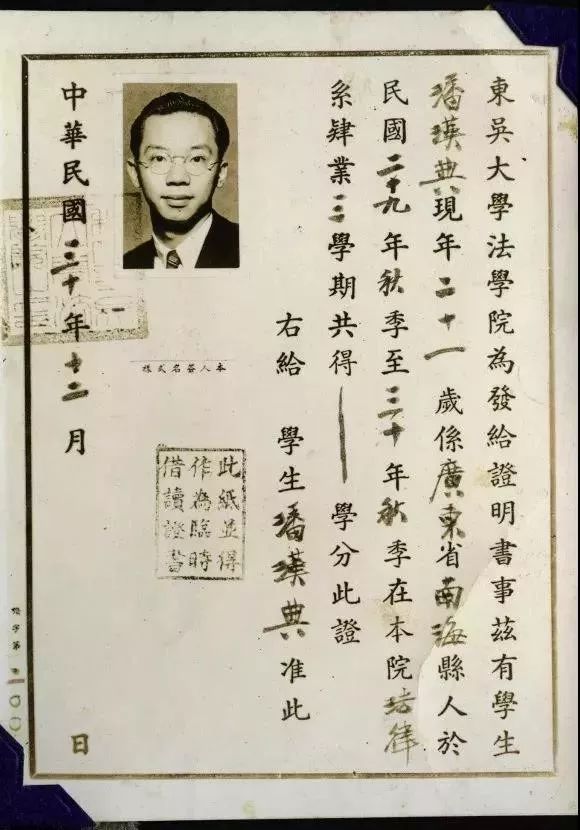 東吳大學法學院為發給證明書事茲有學生
潘漢典現年二十一歲係廣東省南海縣人於
民國二十九年秋季至三十年秋季在本院法律
系肄業三學期共得學分此證
右給 學生潘漢典准此
本人簽名式樣
此紙並得
作為臨時
借讀證書
中華民國三十年十二月 日